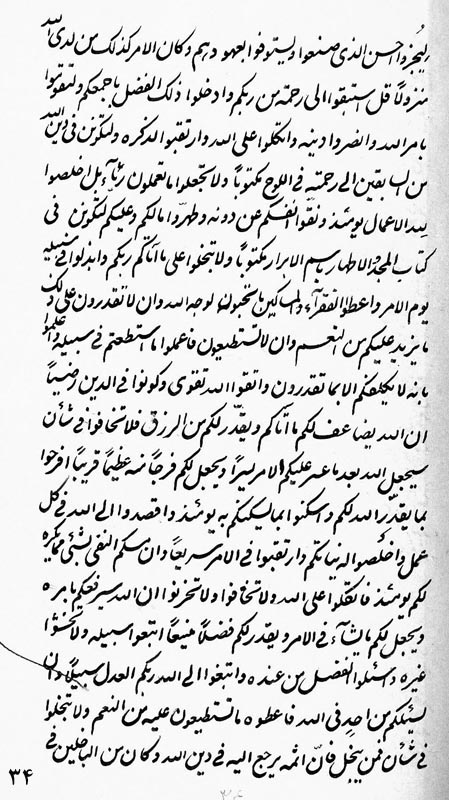 ليجزوا احسن الذى صنعوا وليستوفوا بعهودهم وكان الامر كذلك من لدى الله
منزولا قل استبقوا الى رحمة من ربكم وادخلوا ذلك الفضل باجمعكم ولتقوموا
بامر الله وانصروا دينه واتكلوا على الله وارتقبوا لذكره ولتكونن فى دين الله
من السابقين الى رحمته فى اللوح مكتوباً ولا تجعلوا ما تعملون رياء بل اخلصوا
لله الاعمال يومئذ ونقوا انفسكم عن دونه وطهروا مالكم وعليكم لتكونن فى
كتاب المجد والاطهار باسم الابرار مكتوباً ولا تبخلوا على ما آتاكم ربكم وابذلوا فى سبيله
يوم الامر واعطوا الفقراء والمساكين ما تحبون لوجه الله وان لا تقدرون على ذلك
ما يزيد عليكم من النعم وان لا تستطيعون فاعملوا ما استطعتم فى سبيله واعلموا
بانه لا يكلفكم الا بما تقدرون واتقوا الله تقوى وكونوا فى الدين رضياً
ان الله يضاعف لكم ما آتاكم ويقدر لكم من الرزق فلا تخافوا فى شأن
سيجعل الله بعد ما عسر عليكم الامر يسراً ويجعل لكم فرجاً منه عظيماً قريباً افرحوا
بما يقدر الله لكم واسكنوا بما يسكنكم به يومئذ واقصدوا الى الله فى كل
عمل واخلصوا له نياتكم وارتقبوا فى الامر سريعاً وان مسكم النفى بشئ مما يكره
لكم يومئذ فاتكلوا على الله ولا تخافوا ولا تحزنوا ان الله سيرفعكم بامره
ويجعل لكم ما يشاء فى الامر ويقدر لكم فضلاً منيعاً اتبعوا سبيله ولا تخشوا
غيره واسئلوا الفضل من عنده وابتغوا الى الله ربكم العدل سبيلاً وان
يسئلكم من احد فى الله فاعطوه ما تستطيعون عليه من النعم ولا تبخلوا
فى شأن فمن يبخل فان اثمه يرجع اليه فى دين الله وكان من الباخلين فى
٣۴